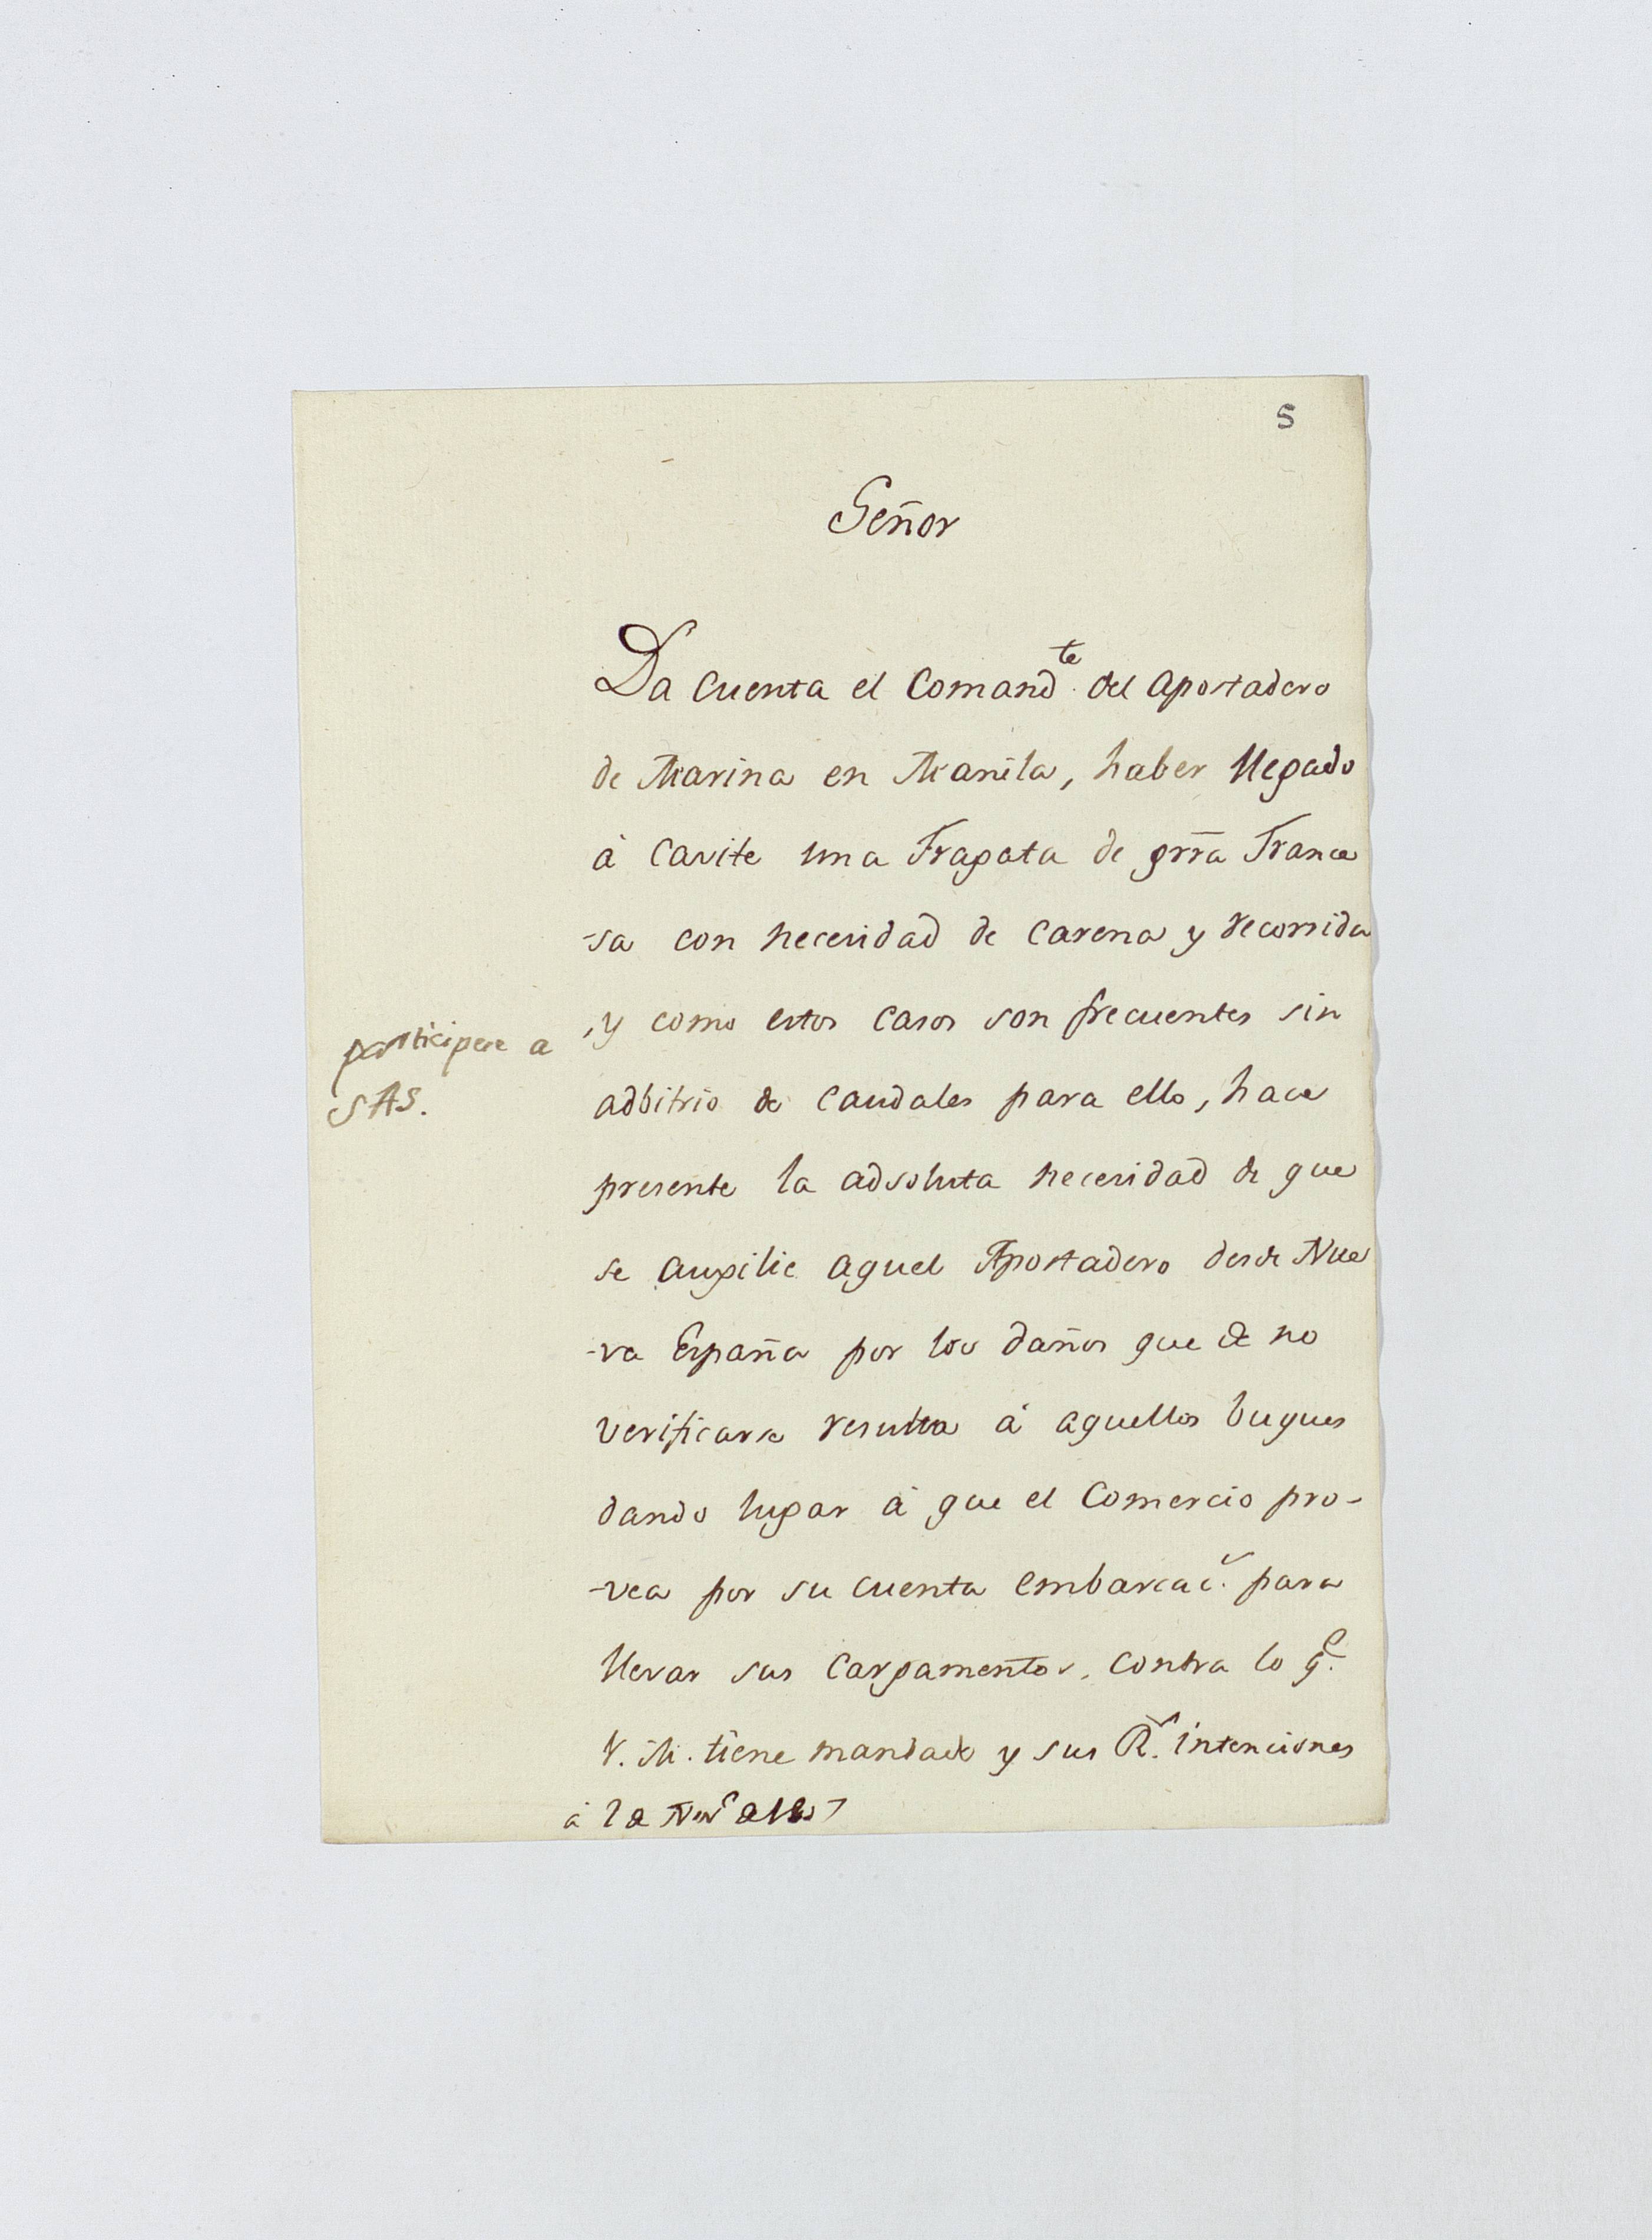 5
Señor
Da cuenta el Comand.te del Apostadero
de Marina en Manila, haber llegado
á Cavite una Fragata de grrã France
-sa con necesidad de carena y recorrida
, y como estos casos son frecuentes sin
participese a
SAS.
adbitrio de caudales para ello, hace
presente la adsoluta necesidad de que
se auxilie aquel Apostadero desde Nue
-va España por los daños que de no
verificarse resulta á aquellos buques
dando lugar á que el Comercio pro-
-vea por su cuenta embarcac.s para
llevar sus cargamentos, contra lo q.e
V. M. tiene mandado y sus R.s intenciones
á 2 de Nov.e de 1807